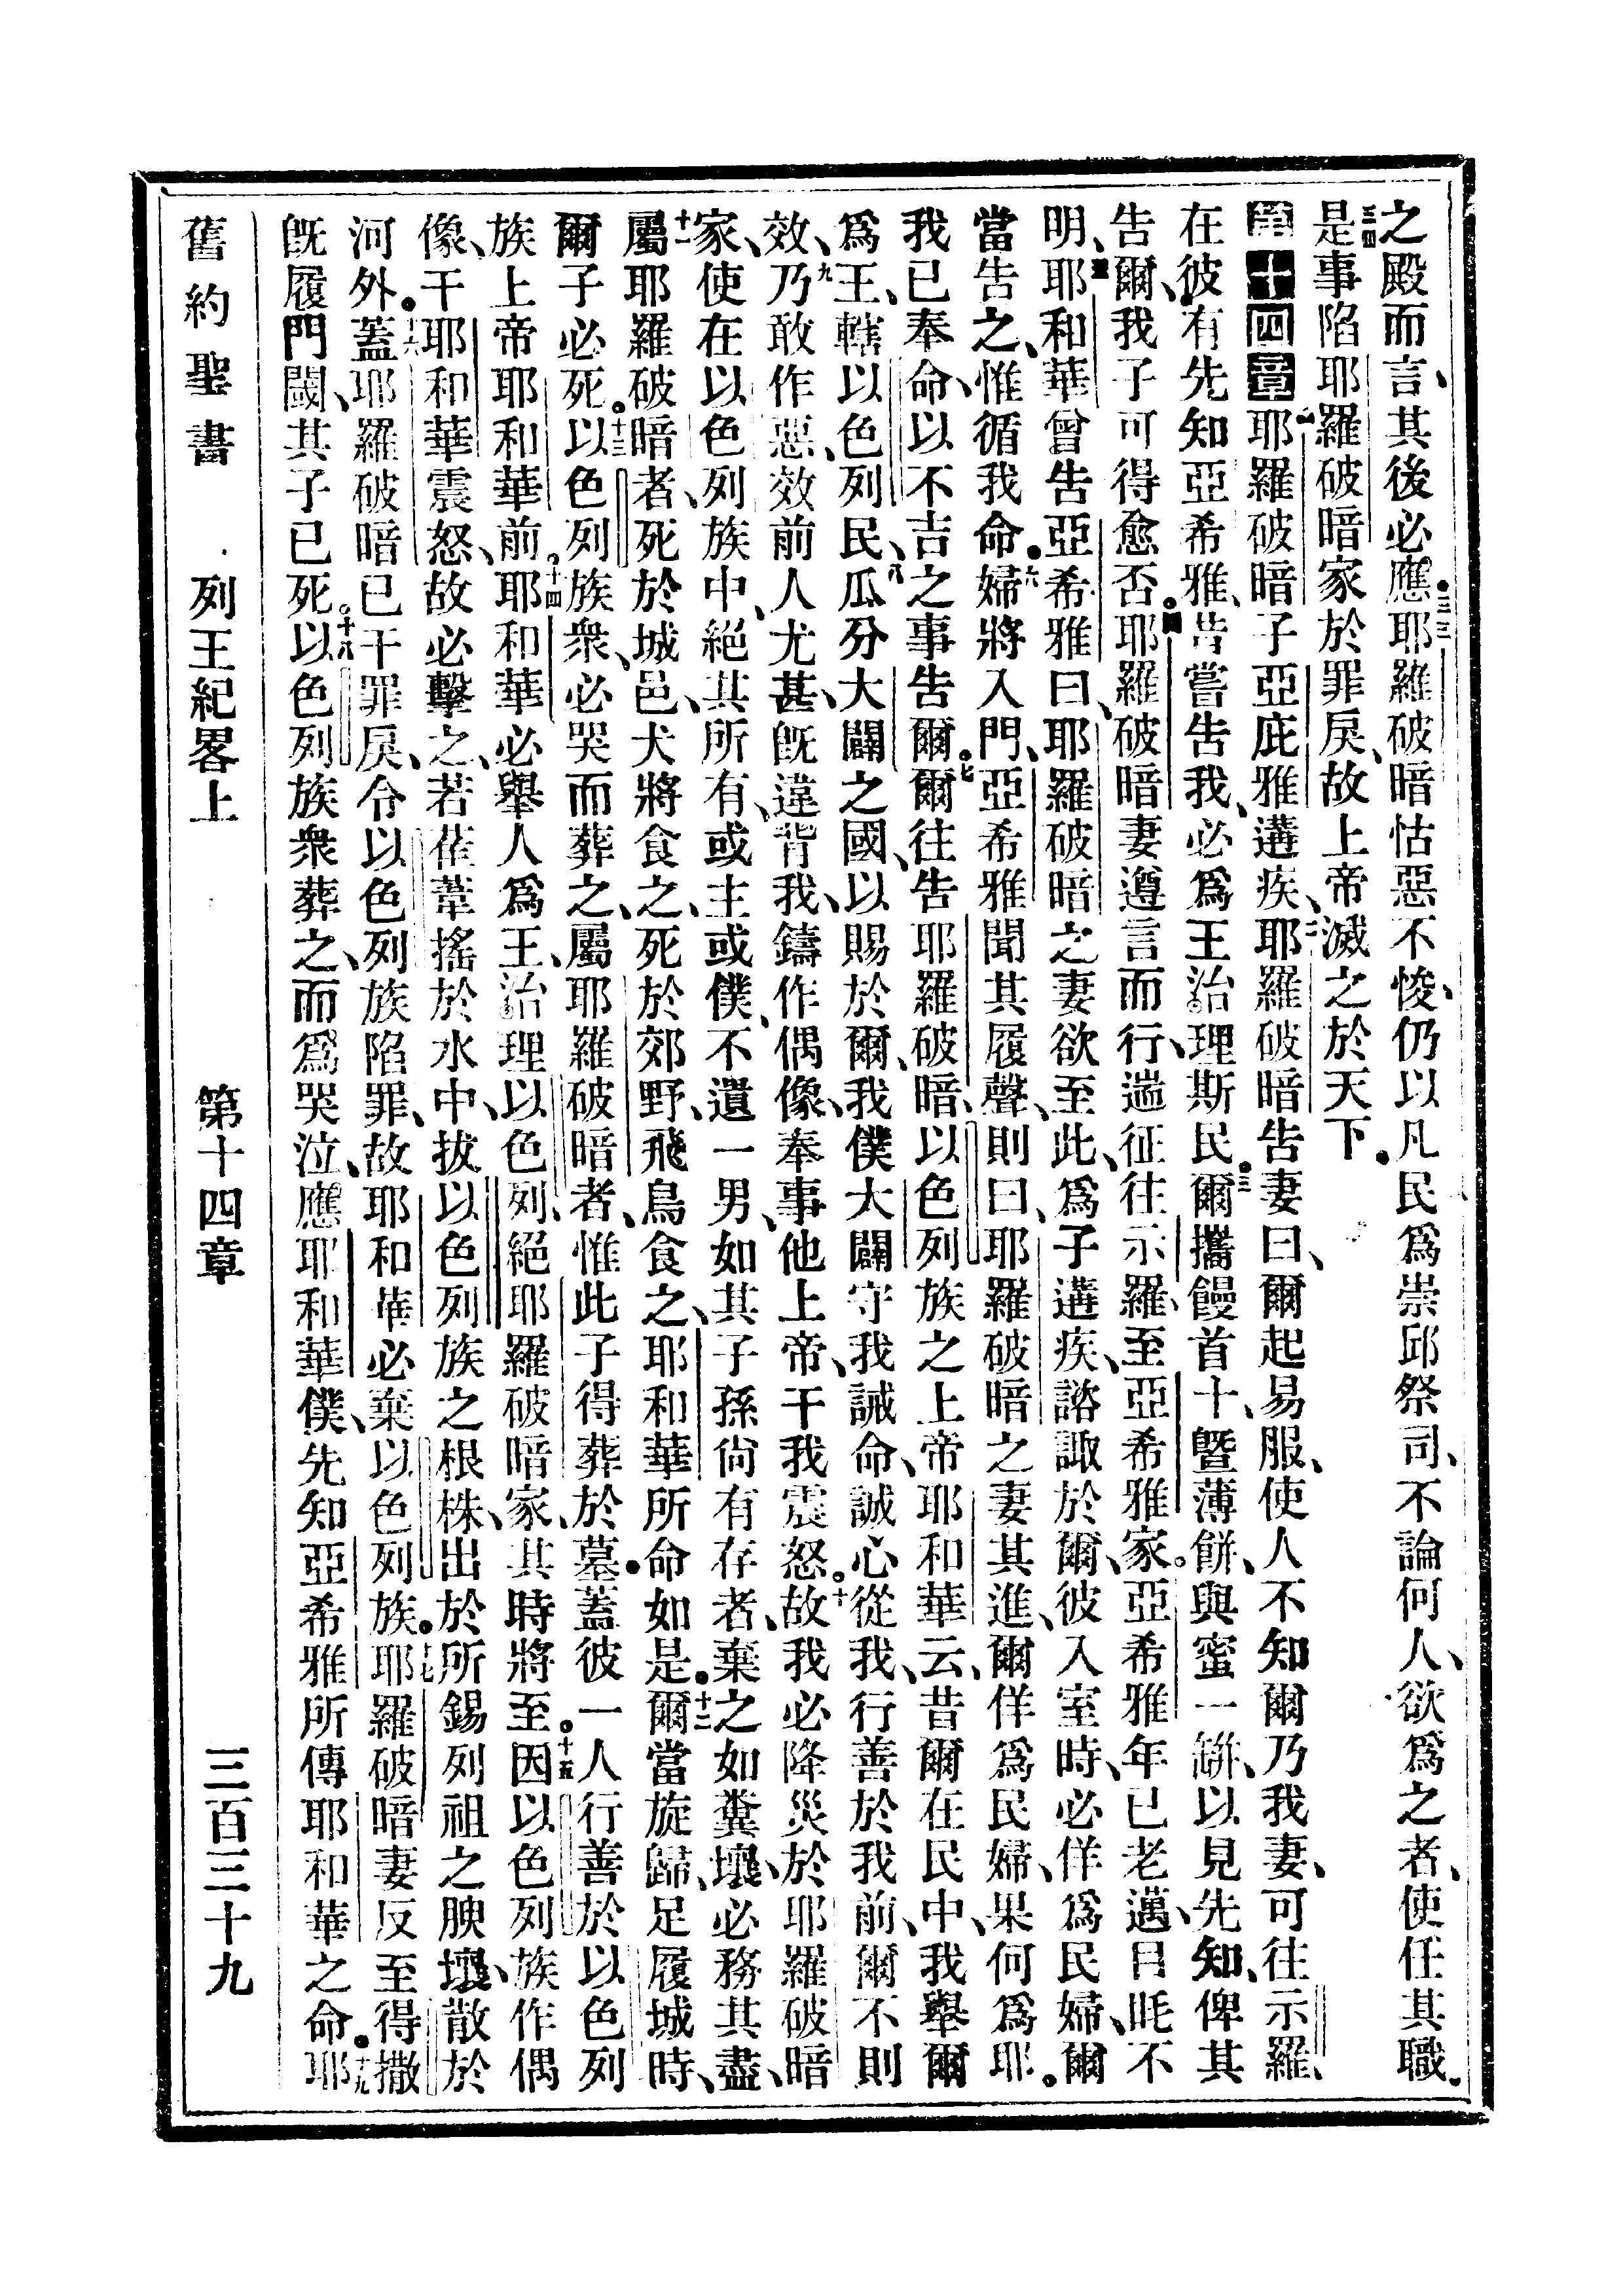 之殿而言、其後必應。三三耶羅破暗怙惡不悛、仍以凡民爲崇邱祭司、不論何人、欲爲之者、使任其職。
三四是事陷耶羅破暗家於罪戾、故上帝滅之於天下。
第十四章 一耶羅破暗子亞庇雅遘疾、二耶羅破暗告妻曰、爾起易服、使人不知爾乃我妻、可往示羅、
在彼有先知亞希雅、昔嘗告我、必爲王治理斯民。三爾攜饅首十、曁薄餅、與蜜一缾、以見先知、俾其
告爾、我子可得愈否。四耶羅破暗妻遵言而行、遄征往示羅、至亞希雅家。亞希雅年已老邁、目眊不
明、五耶和華曾告亞希雅曰、耶羅破暗之妻欲至此、爲子遘疾、諮諏於爾、彼入室時、必佯爲民婦、爾
當告之、惟循我命。六婦將入門、亞希雅聞其履聲、則曰、耶羅破暗之妻其進、爾佯爲民婦、果何爲耶。
我已奉命、以不吉之事告爾。七爾往告耶羅破暗、以色列族之上帝耶和華云、昔爾在民中、我舉爾
爲王、轄以色列民、八瓜分大闢之國、以賜於爾、我僕大闢守我誡命、誠心從我、行善於我前、爾不則
效、九乃敢作惡、效前人尤甚、旣違背我、鑄作偶像、奉事他上帝、干我震怒。十故我必降災於耶羅破暗
家、使在以色列族中、絕其所有、或主或僕、不遺一男、如其子孫尙有存者、棄之如糞壤、必務其盡、
十一屬耶羅破暗者、死於城邑、犬將食之、死於郊野、飛鳥食之、耶和華所命如是。十二爾當旋歸、足履城時、
爾子必死。十三以色列族衆、必哭而葬之、屬耶羅破暗者、惟此子得葬於墓。蓋彼一人行善於以色列
族上帝耶和華前。十四耶和華必舉人爲王、治理以色列、絕耶羅破暗家、其時將至。十五因以色列族作偶
像、干耶和華震怒、故必擊之、若萑葦搖於水中、拔以色列族之根株、出於所錫列祖之腴壤、散於
河外。十六蓋耶羅破暗已干罪戾、令以色列族陷罪、故耶和華必棄以色列族。十七耶羅破暗妻反至得撒
旣履門閾、其子已死。十八以色列族衆葬之、而爲哭泣、應耶和華僕、先知亞希雅所傳耶和華之命。十九耶
舊約聖書 列王紀畧上 第十四章 三百三十九